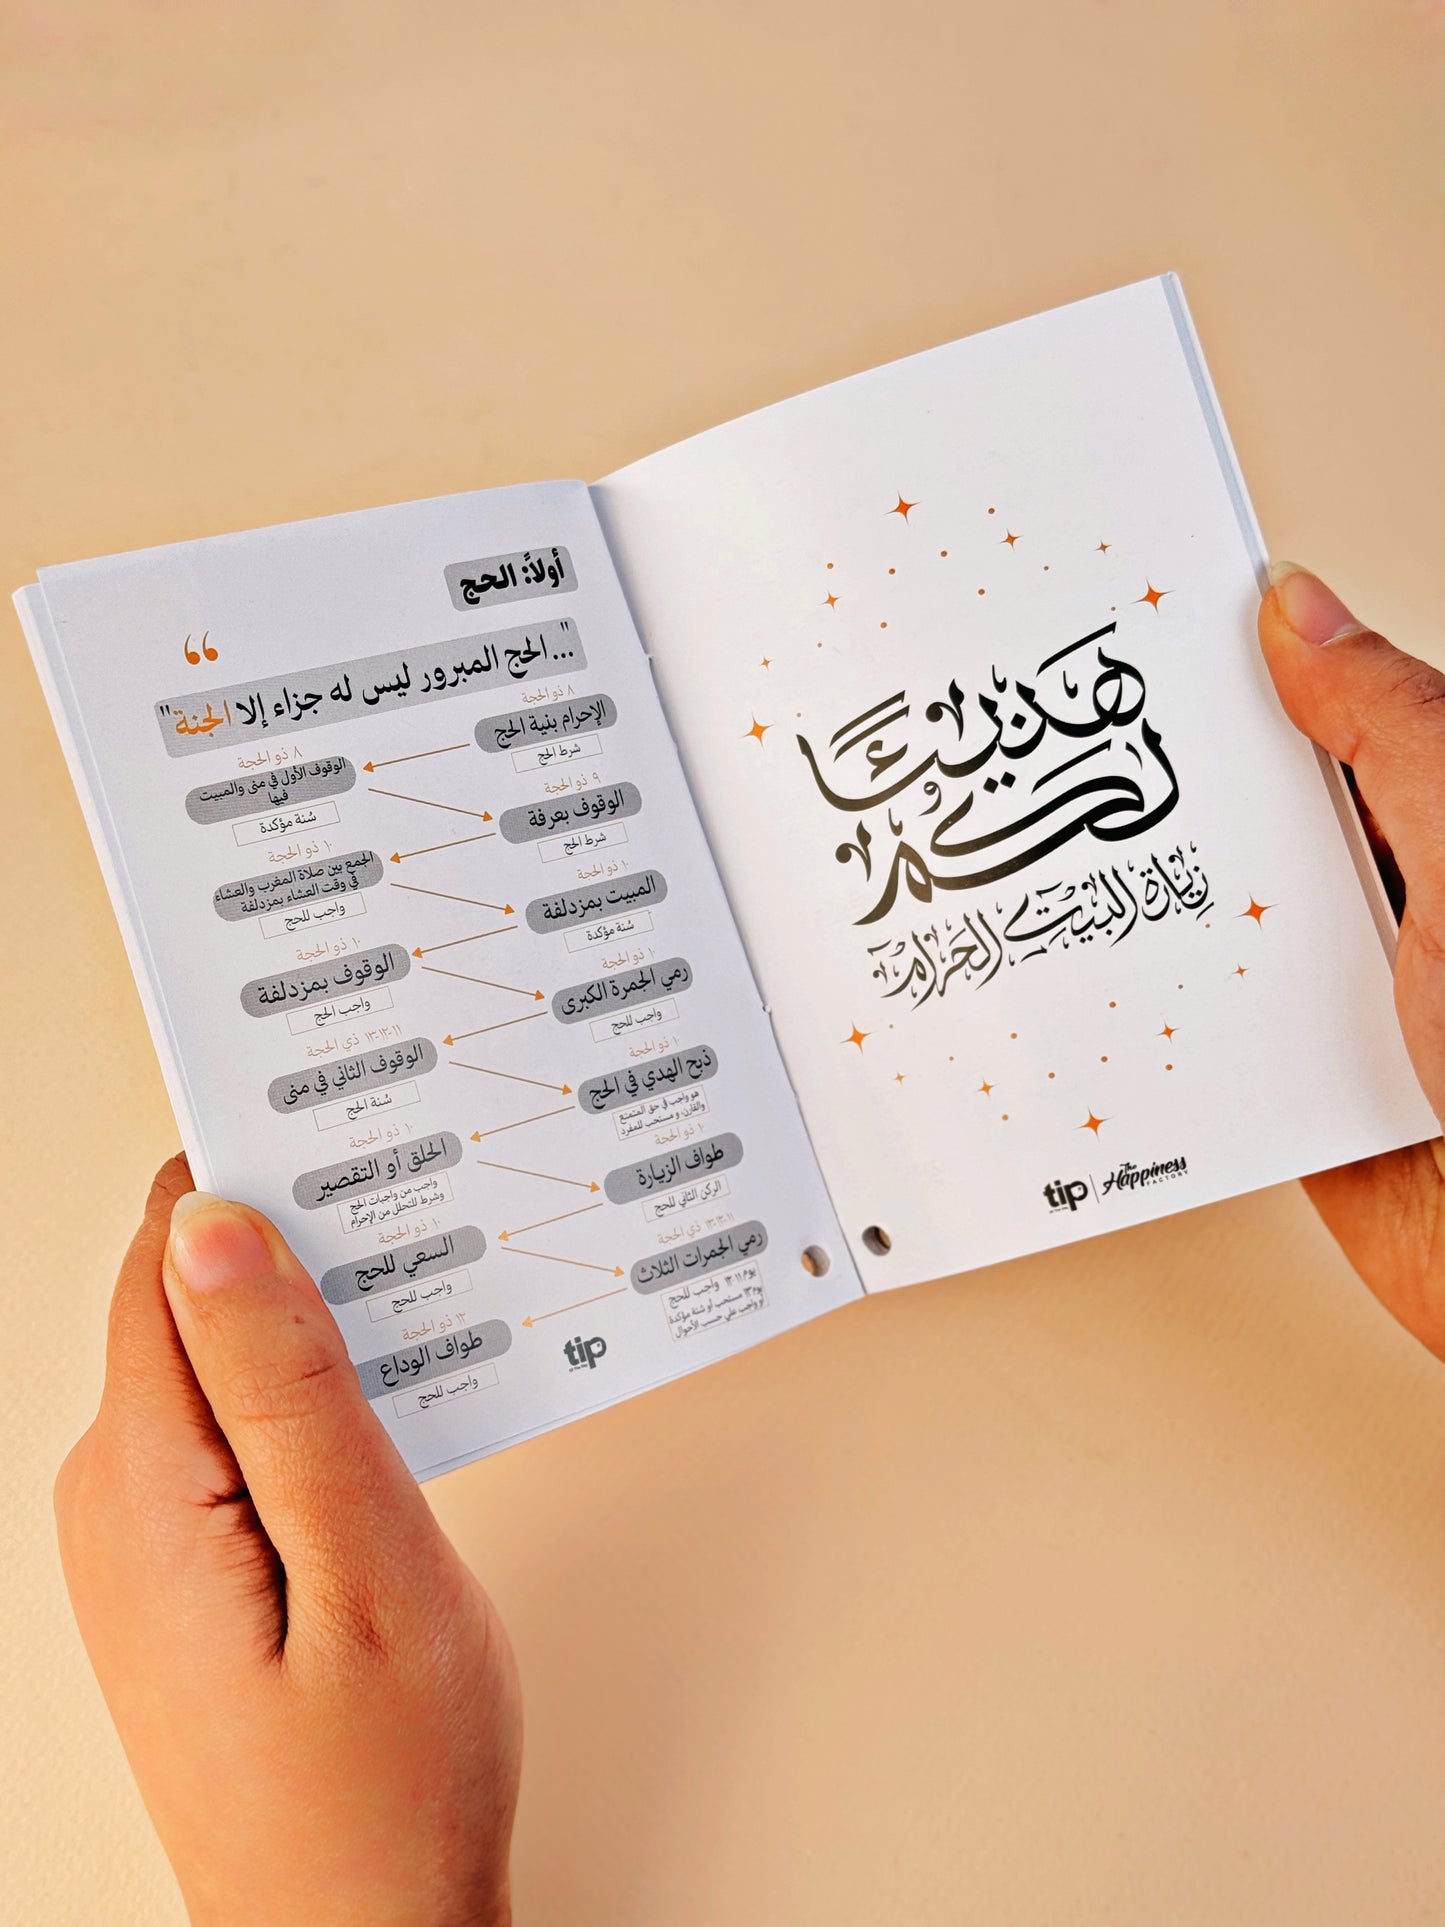 هنيئًا
لكم
زيارة البيت الحرام
tip
The
Happiness
FACTORY
أولاً: الحج
"... الحج المبرور ليس له جزاء إلا الجنة"
٨ ذو الحجة
الإحرام بنية الحج
شرط الحج
٨ ذو الحجة
الوقوف الأول في منى والمبيت
فيها
سُنة مؤكدة
٩ ذو الحجة
الوقوف بعرفة
شرط الحج
١٠ ذو الحجة
الجمع بين صلاة المغرب والعشاء
في وقت العشاء بمزدلفة
واجب للحج
١٠ ذو الحجة
المبيت بمزدلفة
سُنة مؤكدة
١٠ ذو الحجة
الوقوف بمزدلفة
واجب الحج
١٠ ذو الحجة
رمي الجمرة الكبرى
واجب للحج
١١-١٢-١٣ ذي الحجة
الوقوف الثاني في منى
سُنة الحج
١٠ ذو الحجة
ذبح الهدي في الحج
هو واجب في حق المتمتع
والقارن، و مستحب للمفرد
١٠ ذو الحجة
الحلق أو التقصير
واجب من واجبات الحج
وشرط للتحلل من الإحرام
١٠ ذو الحجة
طواف الزيارة
الركن الثاني للحج
١٠ ذو الحجة
السعي للحج
واجب للحج
١١-١٢-١٣ ذي الحجة
رمي الجمرات الثلاث
يوم ١١-١٢ واجب للحج
يوم ١٣ مستحب أو سُنة مؤكدة
أو واجب على حسب الأحوال
١٢ ذو الحجة
طواف الوداع
واجب للحج
tip